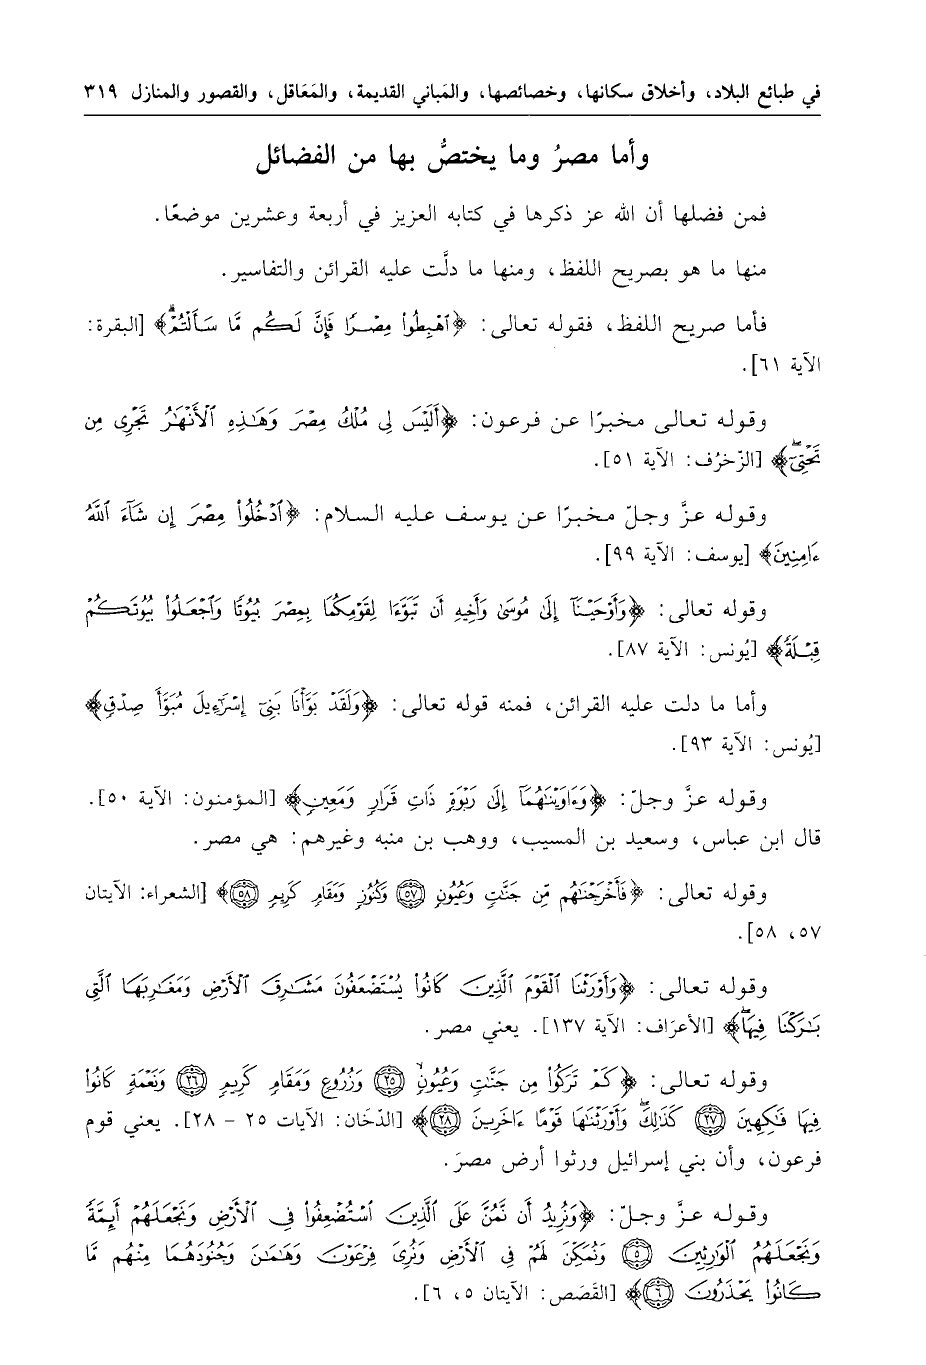 في طبائع البلاد، وأخلاق سكانها، وخصائصها، والمَباني القديمة، والمَعَاقل، والقصور والمنازل ٣١٩
وأما مصرُ وما يختصُّ بها من الفضائل
فمن فضلها أن الله عز ذكرها في كتابه العزيز في أربعة وعشرين موضعًا.
منها ما هو بصريح اللفظ، ومنها ما دلَّت عليه القرائن والتفاسير.
فأما صريح اللفظ، فقوله تعالى: ﴿ٱهْبِطُوا۟ مِصْرًا فَإِنَّ لَكُم مَّا سَأَلْتُمْۗ﴾ [البقرة:
الآية ٦١].
وقوله تعالى مخبرًا عن فرعون: ﴿أَلَيْسَ لِى مُلْكُ مِصْرَ وَهَـٰذِهِ ٱلْأَنْهَـٰرُ تَجْرِى مِن
تَحْتِىٓۖ﴾ [الزّخرُف: الآية ٥١].
وقوله عزَّ وجلّ مخبرًا عن يوسف عليه السلام: ﴿ٱدْخُلُوا۟ مِصْرَ إِن شَآءَ ٱللَّهُ
ءَامِنِينَ﴾ [يوسف: الآية ٩٩].
وقوله تعالى: ﴿وَأَوْحَيْنَآ إِلَىٰ مُوسَىٰ وَأَخِيهِ أَن تَبَوَّءَا لِقَوْمِكُمَا بِمِصْرَ بُيُوتًا وَٱجْعَلُوا۟ بُيُوتَكُمْ
قِبْلَةً﴾ [يُونس: الآية ٨٧].
وأما ما دلت عليه القرائن، فمنه قوله تعالى: ﴿وَلَقَدْ بَوَّأْنَا بَنِىٓ إِسْرَٰٓءِيلَ مُبَوَّأَ صِدْقٍ﴾
[يُونس: الآية ٩٣].
وقوله عزَّ وجلّ: ﴿وَءَاوَيْنَـٰهُمَآ إِلَىٰ رَبْوَةٍ ذَاتِ قَرَارٍ وَمَعِينٍ﴾ [المؤمنون: الآية ٥٠].
قال ابن عباس، وسعيد بن المسيب، ووهب بن منبه وغيرهم: هي مصر.
وقوله تعالى: ﴿فَأَخْرَجْنَـٰهُم مِّن جَنَّـٰتٍ وَعُيُونٍ ٥٧ وَكُنُوزٍ وَمَقَامٍ كَرِيمٍ ٥٨﴾ [الشعراء: الآيتان
٥٧، ٥٨].
وقوله تعالى: ﴿وَأَوْرَثْنَا ٱلْقَوْمَ ٱلَّذِينَ كَانُوا۟ يُسْتَضْعَفُونَ مَشَـٰرِقَ ٱلْأَرْضِ وَمَغَـٰرِبَهَا ٱلَّتِى
بَـٰرَكْنَا فِيهَاۖ﴾ [الأعرَاف: الآية ١٣٧]. يعني مصر.
وقوله تعالى: ﴿كَمْ تَرَكُوا۟ مِن جَنَّـٰتٍ وَعُيُونٍ ٢٥ وَزُرُوعٍ وَمَقَامٍ كَرِيمٍ ٢٦ وَنَعْمَةٍ كَانُوا۟
فِيهَا فَـٰكِهِينَ ٢٧ كَذَٰلِكَۖ وَأَوْرَثْنَـٰهَا قَوْمًا ءَاخَرِينَ ٢٨﴾ [الدّخان: الآيات ٢٥ - ٢٨]. يعني قوم
فرعون، وأن بني إسرائيل ورثوا أرض مصرَ.
وقوله عزَّ وجلّ: ﴿وَنُرِيدُ أَن نَّمُنَّ عَلَى ٱلَّذِينَ ٱسْتُضْعِفُوا۟ فِى ٱلْأَرْضِ وَنَجْعَلَهُمْ أَئِمَّةً
وَنَجْعَلَهُمُ ٱلْوَٰرِثِينَ ٥ وَنُمَكِّنَ لَهُمْ فِى ٱلْأَرْضِ وَنُرِىَ فِرْعَوْنَ وَهَـٰمَـٰنَ وَجُنُودَهُمَا مِنْهُم مَّا
كَانُوا۟ يَحْذَرُونَ ٦﴾ [القَصَص: الآيتان ٥، ٦].